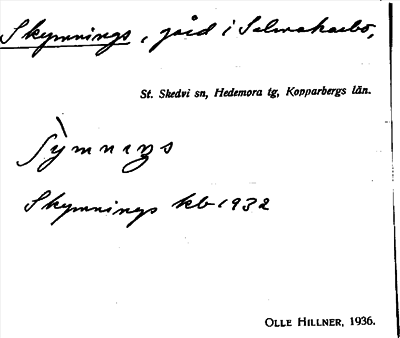 Skymnings, gård i Solvarbo,
St. Skedvi sn, Hedemora tg, Kopparbergs län.
Skymnings kb 1932
OLLE HILLNER, 1936.